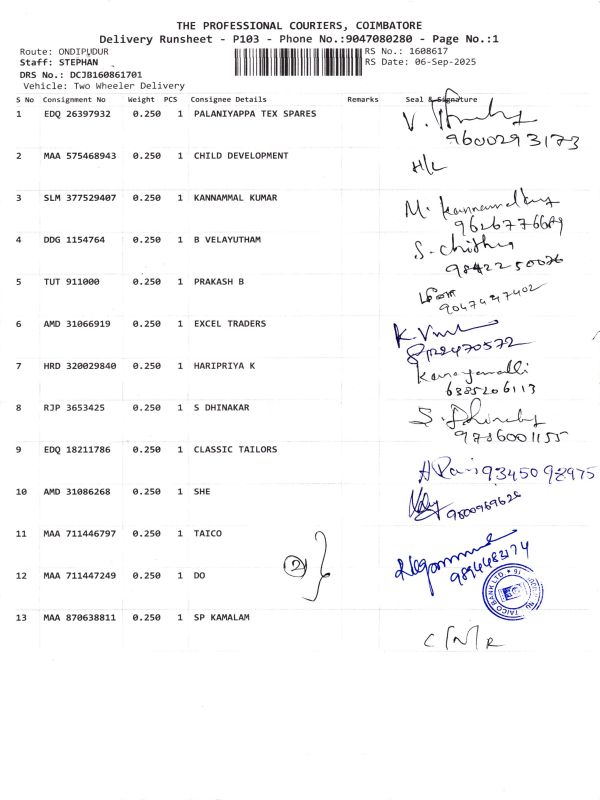 THE PROFESSIONAL COURIERS, COIMBATORE
Delivery Runsheet - P103 - Phone No.:9047080280 - Page No.:1
Route: ONDIPUDUR
RS No.: 1608617
Staff: STEPHAN
RS Date: 06-Sep-2025
DRS No.: DCJB160861701
Vehicle: Two Wheeler Delivery
S No Consignment No Weight PCS Consignee Details Remarks Seal & Signature
1 EDQ 26397932 0.250 1 PALANIYAPPA TEX SPARES
9600293173
2 MAA 575468943 0.250 1 CHILD DEVELOPMENT
H/L
3 SLM 377529407 0.250 1 KANNAMMAL KUMAR M.
4 DDG 1154764 0.250 1 B VELAYUTHAM S. Chithra
9842250026
5 TUT 911000 0.250 1 PRAKASH B
9047427402
6 AMD 31066919 0.250 1 EXCEL TRADERS
7 HRD 320029840 0.250 1 HARIPRIYA K
6385206113
8 RJP 3653425 0.250 1 S DHINAKAR
9786001155
9 EDQ 18211786 0.250 1 CLASSIC TAILORS
9345098975
10 AMD 31086268 0.250 1 SHE
9600969626
11 MAA 711446797 0.250 1 TAICO
2
12 MAA 711447249 0.250 1 DO
9894483174
TAICO BANK LTD
13 MAA 870638811 0.250 1 SP KAMALAM
C/N/R